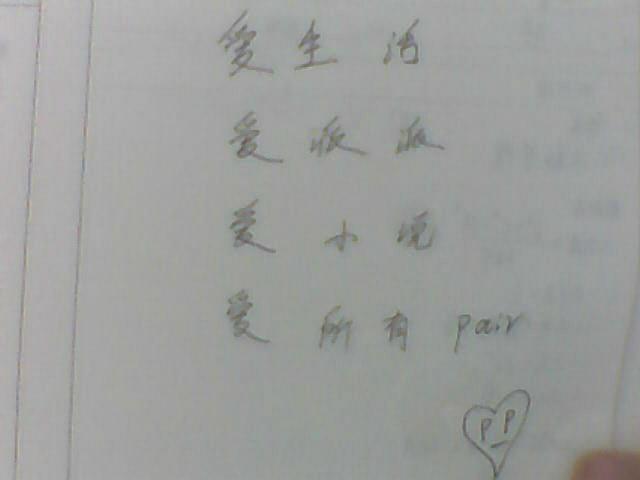 爱生活
爱派派
爱小说
爱所有 pair
PP